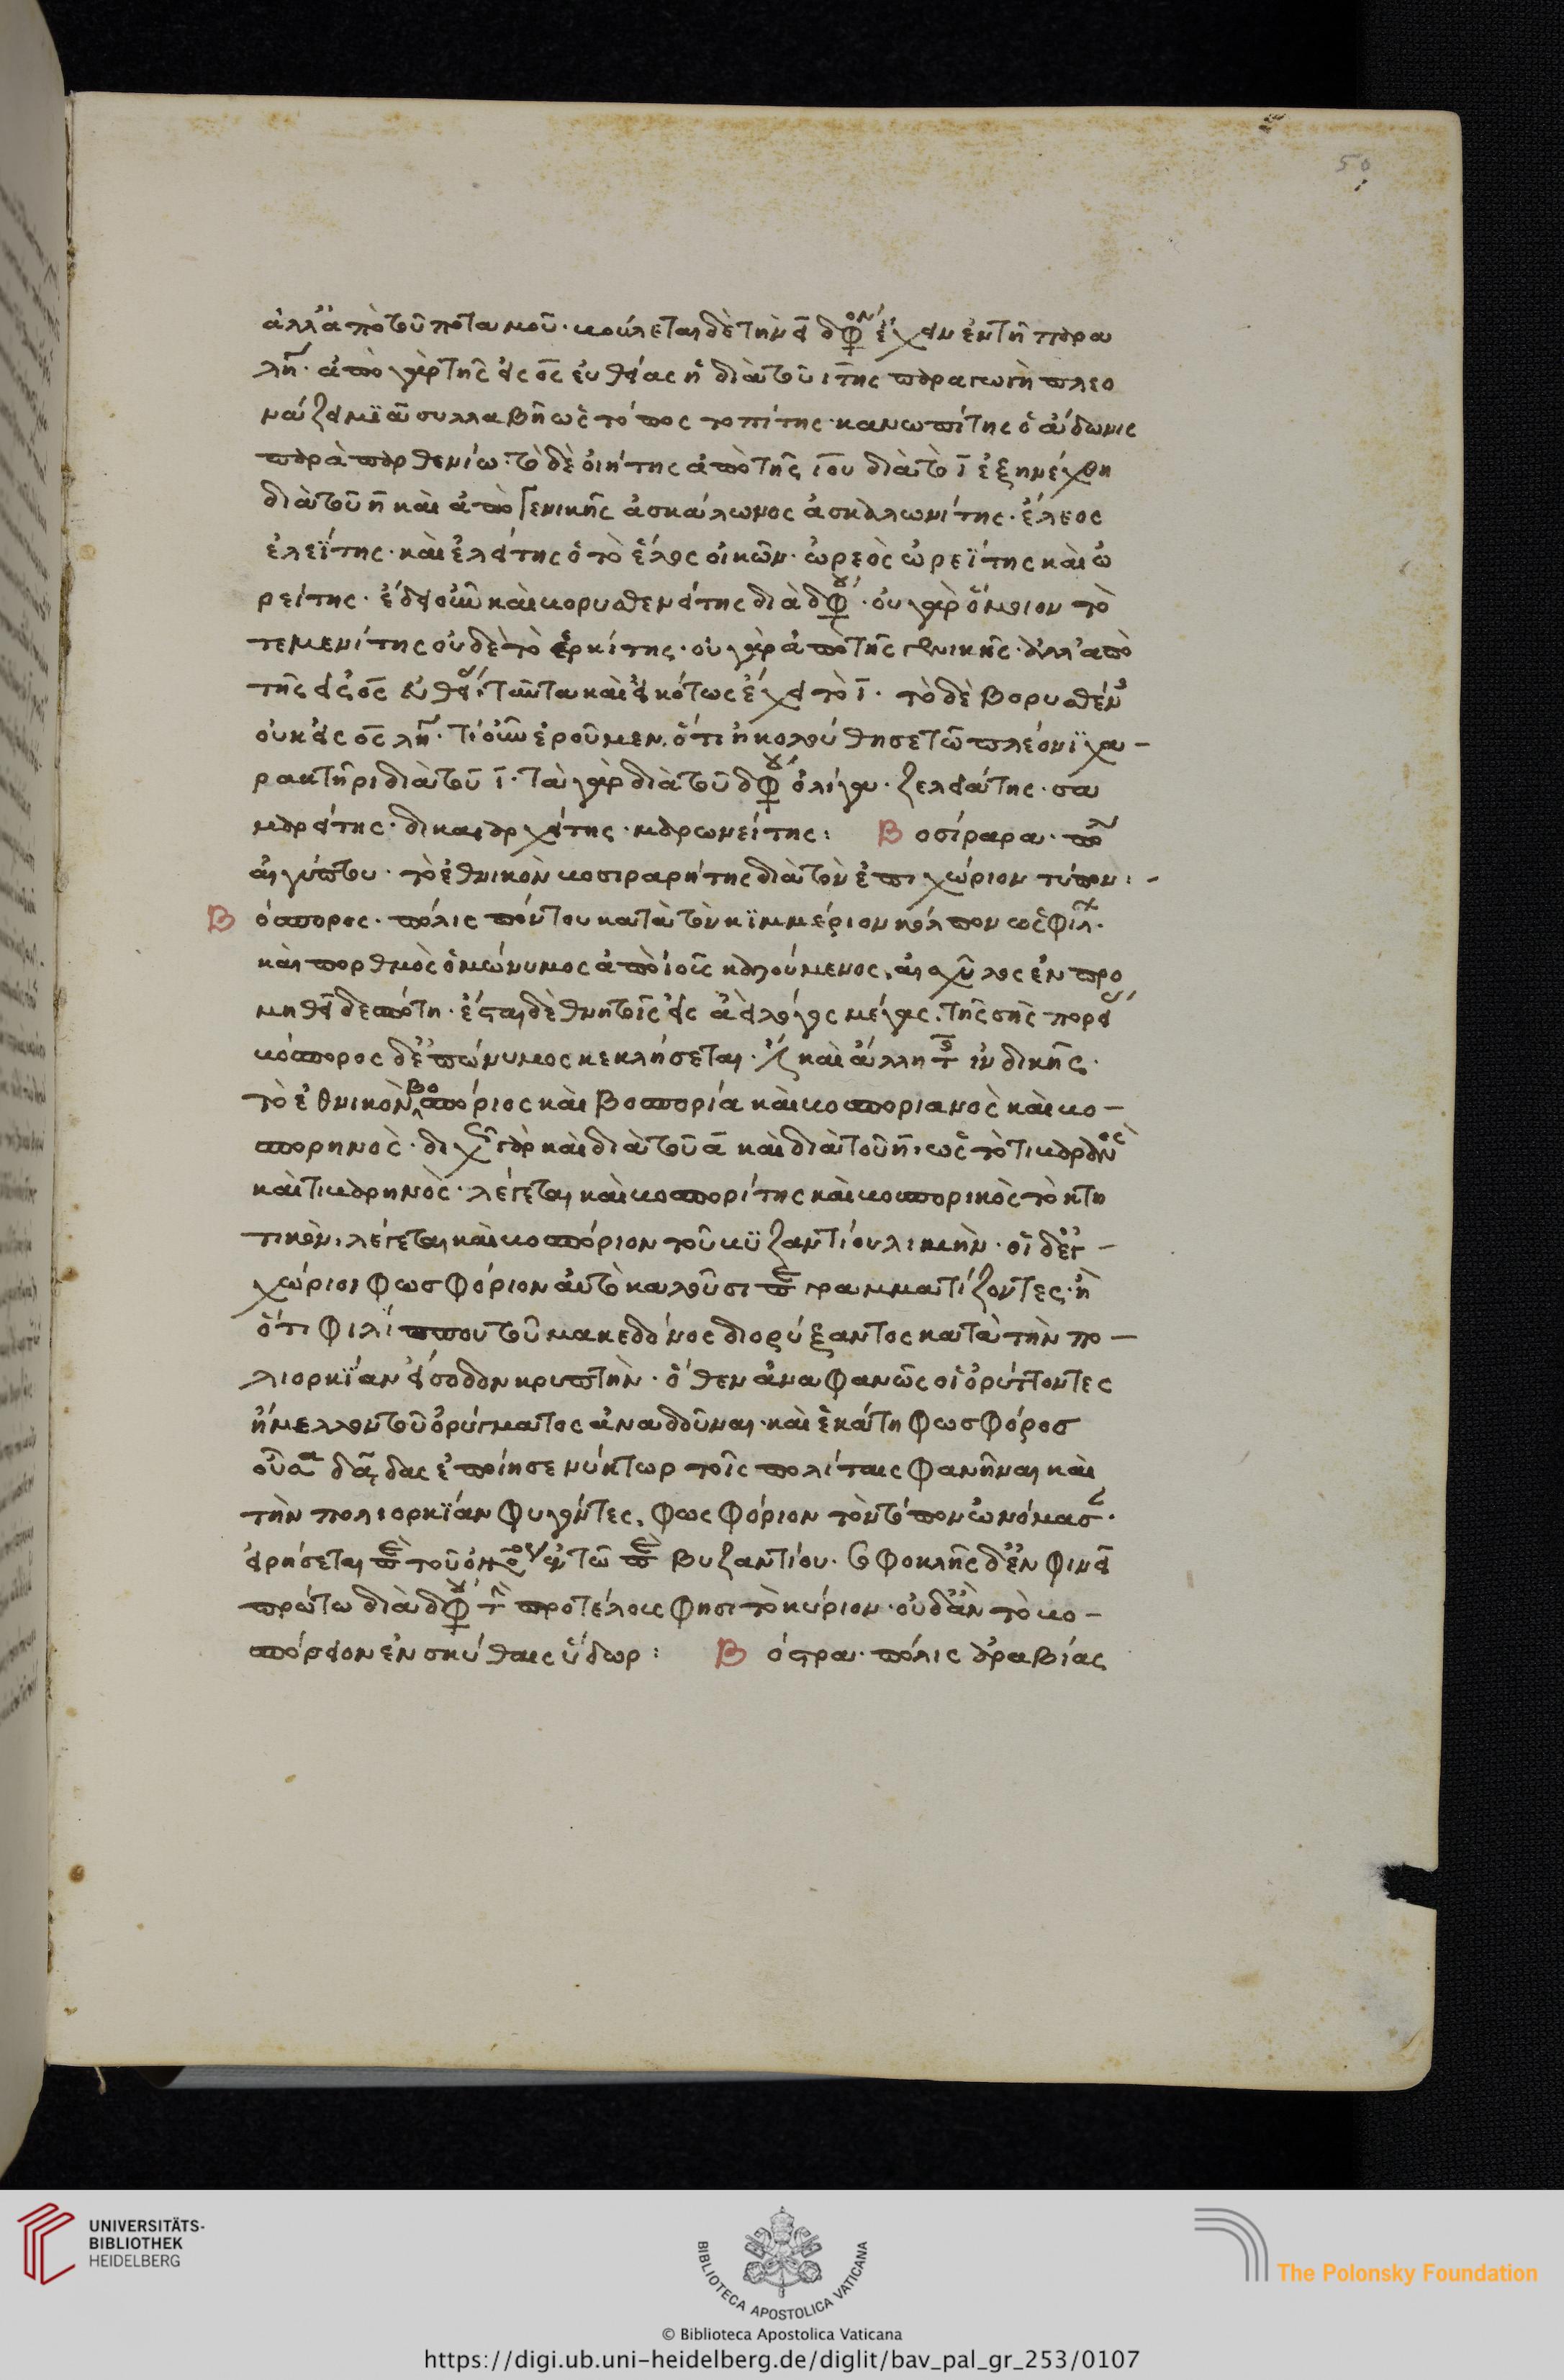 50
ἀλλ' ἀπὸ τοῦ ποταμοῦ· βούλεται δὲ τὴν ει δίφθογγον ἔχειν ἐν τῆ παρα
λή· ἀπὸ γὰρ τῆς εις ος εὐθείας ἡ διὰ τοῦ ιτης παραγωγὴ πλεο
νάζει μϊᾶ συλλαβῆ ὡς τόπος τοπίτης· κανωπίτης ὁ ἄδωνις
παρὰ παρθενίω· τὸ δὲ οἰήτης ἀπὸ τῆς ἴου διὰ τὸ ῑ ἐξηνέχθη
διὰ τοῦ η̄ καὶ ἀπὸ γενικῆς ἀσκάλωνος ἀσκαλωνίτης· ἕλεος
ἐλεΐτης· καὶ ἑλείτης ὁ τὸ ἕλος οἰκῶν· ὠρεὸς ὠρεΐτης καὶ ὠ
ρείτης· ἔδει οὖν καὶ βορυσθενείτης διὰ διφθόγγου· οὐ γὰρ ὅμοιον τὸ
τεμενίτης οὐδὲ τὸ ἑρκίτης· οὐ γὰρ ἀπὸ τῆς γενικῆς· ἀλλ' ἀπὸ
τῆς εις ος εὐθείας ταῦτα καὶ εἰκότως ἔχει τὸ ῑ· τὸ δὲ βορυσθένης
οὐκ εἰς ος λή· τί οὖν ἐροῦμεν, ὅτι ἠκολούθησε τῶ πλέονϊ χα-
ρακτῆρι διὰ τοῦ ῑ· τὰ γὰρ διὰ τοῦ διφθόγγου ὀλίγα· ζελεάτης· σα
μαρείτης· δικαιαρχείτης· μαρωνείτης: Βοσίραρα· πόλις
αἰγύπτου· τὸ ἐθνικὸν βοσιραρήτης διὰ τὸν ἐπιχώριον τύπον:-
Βόσπορος· πόλις πόντου κατὰ τὸν κϊμμέριον κόλπον ὡς φίλων·
καὶ πορθμὸς ὁμώνυμος ἀπὸ ἰοῦς καλούμενος, αἰσχύλος ἐν προ
μηθεῖ δεσμώτη· ἔσται δὲ θνητοῖς εἰς ἀεὶ λόγος μέγας, τῆς σῆς πορείας
βόσπορος δ' ἐπώνυμος κεκλήσεται· ἔστι καὶ ἄλλη πόλις ἰνδικῆς·
τὸ ἐθνικὸν βοσπόριος καὶ βοσπορία καὶ βοσποριανὸς καὶ βο-
σπορηνὸς· διχῶς γὰρ καὶ διὰ τοῦ ᾱ καὶ διὰ τοῦ η̄, ὡς τὸ τιβαρανὸς
καὶ τιβαρηνὸς· λέγεται καὶ βοσπορίτης καὶ βοσπορικὸς τὸ κτη
τικὸν, λέγεται καὶ βοσπόριον τοῦ βϋζαντίου λιμὴν· οἱ δ' ἐγ-
χώριοι φωσφόριον αὐτὸ καλοῦσι παραγραμματίζοντες· ἢ
ὅτι φιλίππου τοῦ μακεδόνος διορύξαντος κατὰ τὴν πο-
λιορκΐαν εἴσοδον κρυπτὴν· ὅθεν ἀναφανῶς οἱ ὀρύττοντες
ἤμελλον τοῦ ὀρύγματος ἀναδῦναι· καὶ ἑκάτη φωσφόρος
οὖσα δᾷδας ἐποίησε νύκτωρ τοῖς πολίταις φανῆναι καὶ
τὴν πολιορκΐαν φυγόντες, φωσφόριον τὸν τόπον ὠνόμασαν·
εἰρήσεται περὶ τοῦ ὅρου ἐν τῶ περὶ βυζαντίου. Σοφοκλῆς δ' ἐν φινεῖ
πρώτω διὰ διφθόγγου τῆς προτέλους φησὶ τὸ κύριον· οὐδ' ἂν τὸ βο-
σπόρειον ἐν σκύθαις ὕδωρ: Βόστρα· πόλις ἀραβίας
UNIVERSITÄTS-
BIBLIOTHEK
HEIDELBERG
BIBLIOTECA APOSTOLICA VATICANA
The Polonsky Foundation
© Biblioteca Apostolica Vaticana
https://digi.ub.uni-heidelberg.de/diglit/bav_pal_gr_253/0107